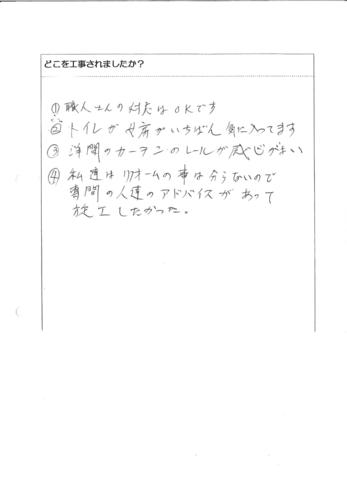 どこを工事されましたか？
① 職人さんの対応はOKです
② トイレが 々房がいちばん 気に入ってます
③ 洋間のカーテンのレールが感心がまい
④ 私達はリフォームの事は分らないので
専門の人達のアドバイスがあって
施工したかった。